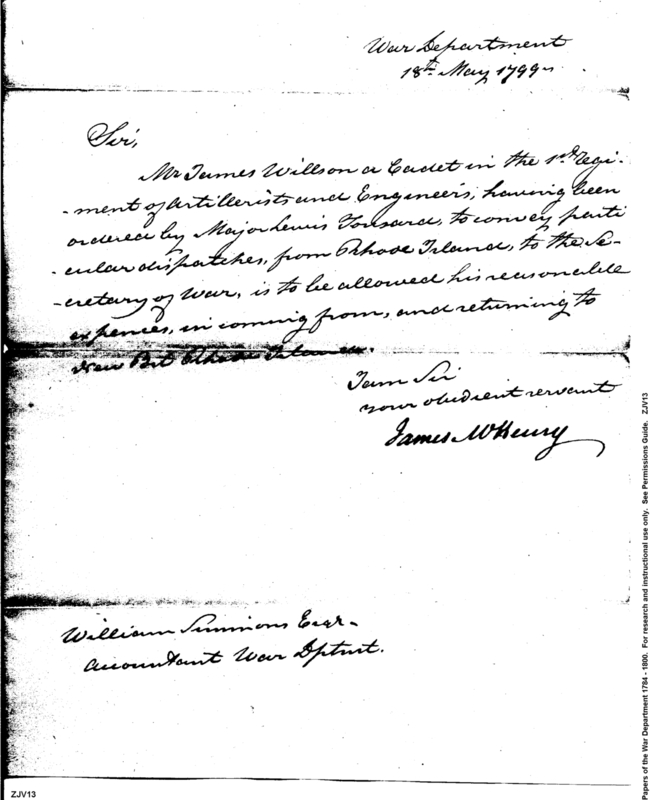 War Department
18th May 1799
Sir,
Mr James Willson a Cadet in the 1st Regi-
-ment of Artillerists and Engineers, having been
ordered by Major Lewis Tousard, to convey parti
-cular dispatches, from Rhode Island, to the Se-
-cretary of War, is to be allowed his reasonable
expences, in coming from, and returning to
New Port Rhode Island.
I am Sir
your obedient servant
James McHenry
William Simmons Esqr.
Accountant War Dptmt.
ZJV13
Papers of the War Department 1784 - 1800. For research and instructional use only. See Permissions Guide. ZJV13